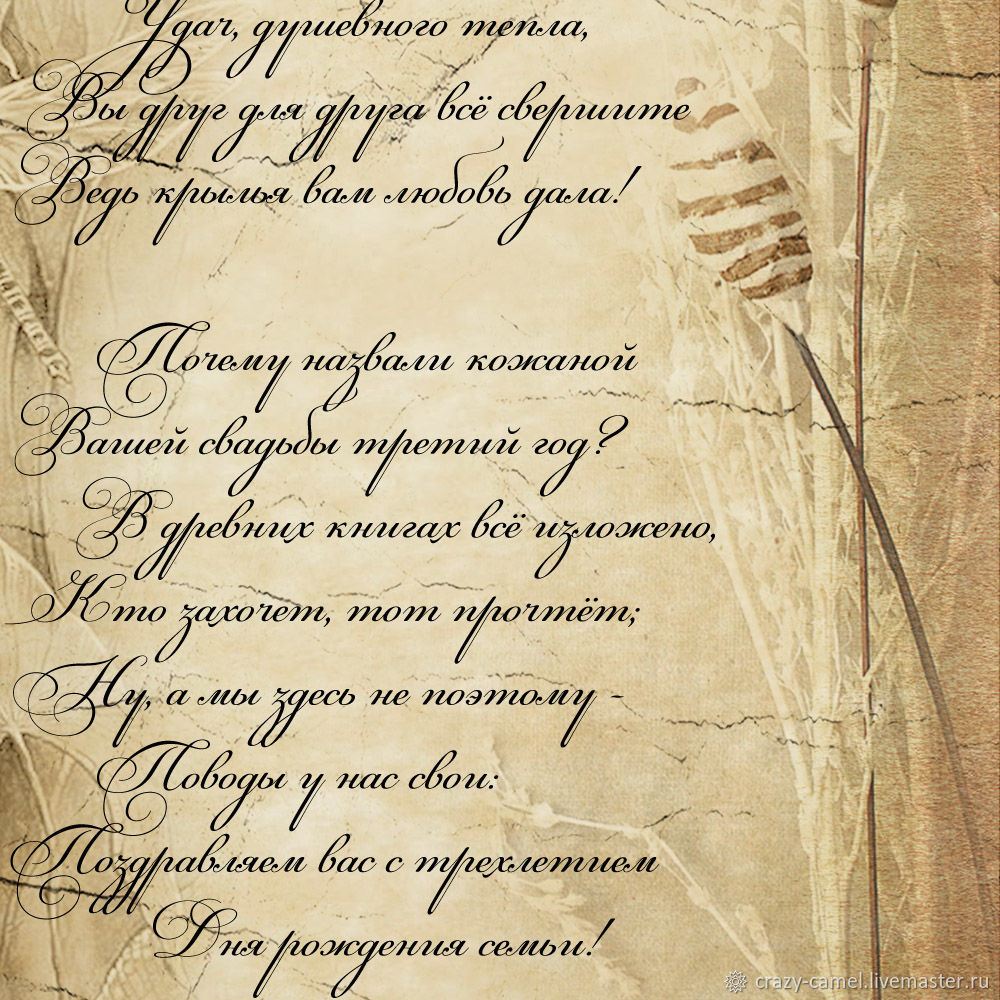 Удач, душевного тепла,
Вы друг для друга всё свершите
Ведь крылья вам любовь дала!
Почему назвали кожаной
Вашей свадьбы третий год?
В древних книгах всё изложено,
Кто захочет, тот прочтёт;
Ну, а мы здесь не поэтому -
Поводы у нас свои:
Поздравляем вас с трехлетием
Дня рождения семьи!
crazy-camel.livemaster.ru